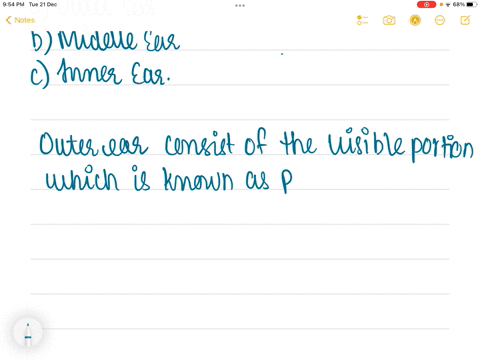 9:54 PM Tue 21 Dec
68%
Notes
b) Middle Ear
c) Inner Ear.
Outer ear consist of the visible portion
which is known as p